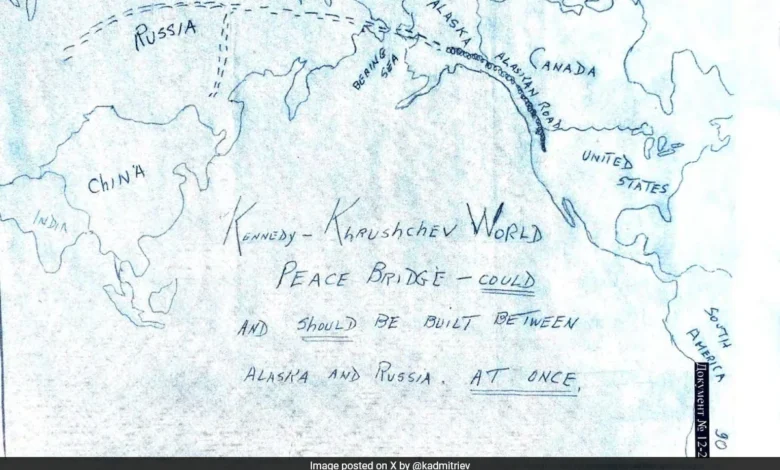 ALASKA
RUSSIA
BERING
SEA
ALASKAN ROAD
CANADA
CHINA
INDIA
UNITED
STATES
KENNEDY – KHRUSHCHEV WORLD
PEACE BRIDGE – COULD
AND SHOULD BE BUILT BETWEEN
ALASKA AND RUSSIA. AT ONCE.
SOUTH
AMERICA
Документ № 12-2
90
Image posted on X by @kadmitriev